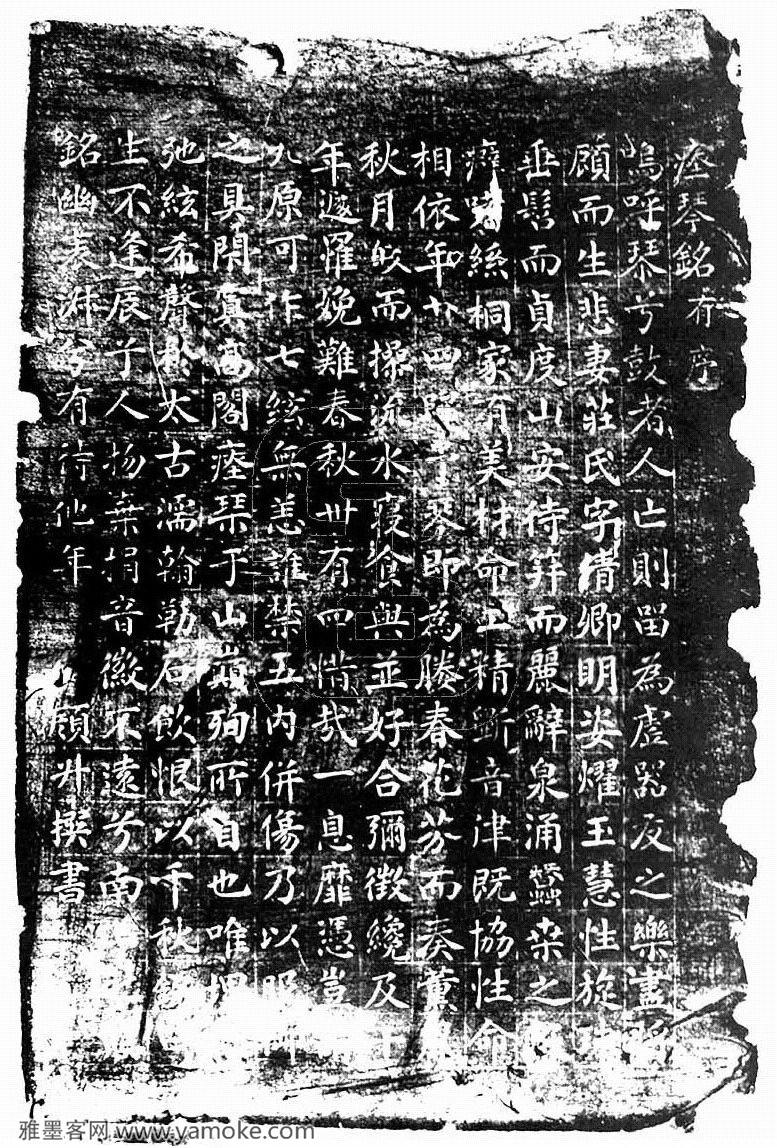 瘞琴銘有序
嗚呼琴兮鼓者人亡則畱為虛器反之樂盡
顧而生悲妻莊氏字倩卿明姿燿玉慧性旋
垂髫而貞度山安待笄而麗辭泉涌蠶桒之
癖絲桐家有美材命工精斲音津既協性命
相依年廿四琴即為媵春花芬而奏薰
秋月皎而操流水寢食與並好合彌徵纔及
年遽罹娩難春秋卅有四惜哉一息靡憑豈
九原可作七絃無恙誰禁五內併傷乃以
之具閟寘高閣瘞琹于山巔殉所自也唯
弛絃希聲於太古濡翰勒石飲恨以千秋
生不逢辰兮人物棄捐音徽不遠兮南
銘幽表兮有待他年 顧升撰書
雅墨客网 www.yamoke.com